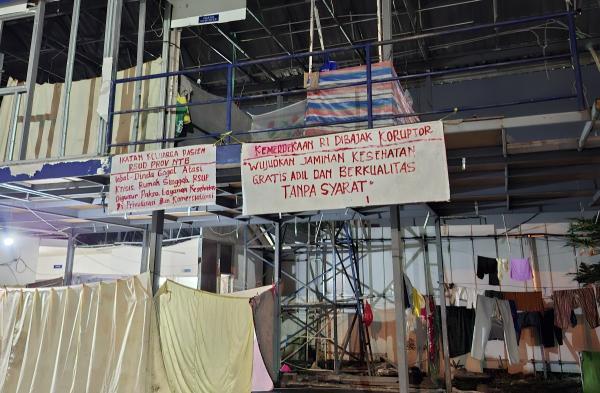 IKATAN KELUARGA PASIEN
RSUD PROV NTB
Iqbal-Dinda Gagal Atasi
Krisis Rumah Singgah RSUP
Digusur Paksa, Layanan Kesehatan
Di Privatisasi Dan Komersialisasi
KEMERDEKAAN RI DIBAJAK KORUPTOR
WUJUDKAN JAMINAN KESEHATAN
GRATIS ADIL DAN BERKUALITAS
TANPA SYARAT"
!